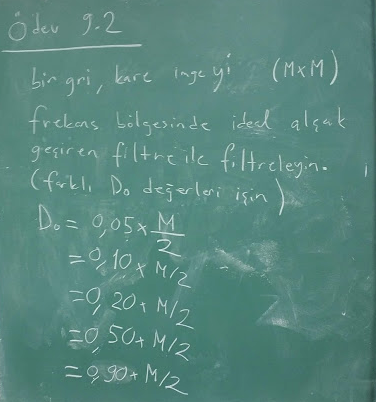 Ödev 9.2
bir gri, kare imgeyi (MxM)
frekans bölgesinde ideal alçak
geçiren filtre ile filtreleyin.
(farklı D₀ değerleri için)
D₀ = 0,05 x M/2
= 0,10 x M/2
= 0,20 x M/2
= 0,50 x M/2
= 0,90 x M/2